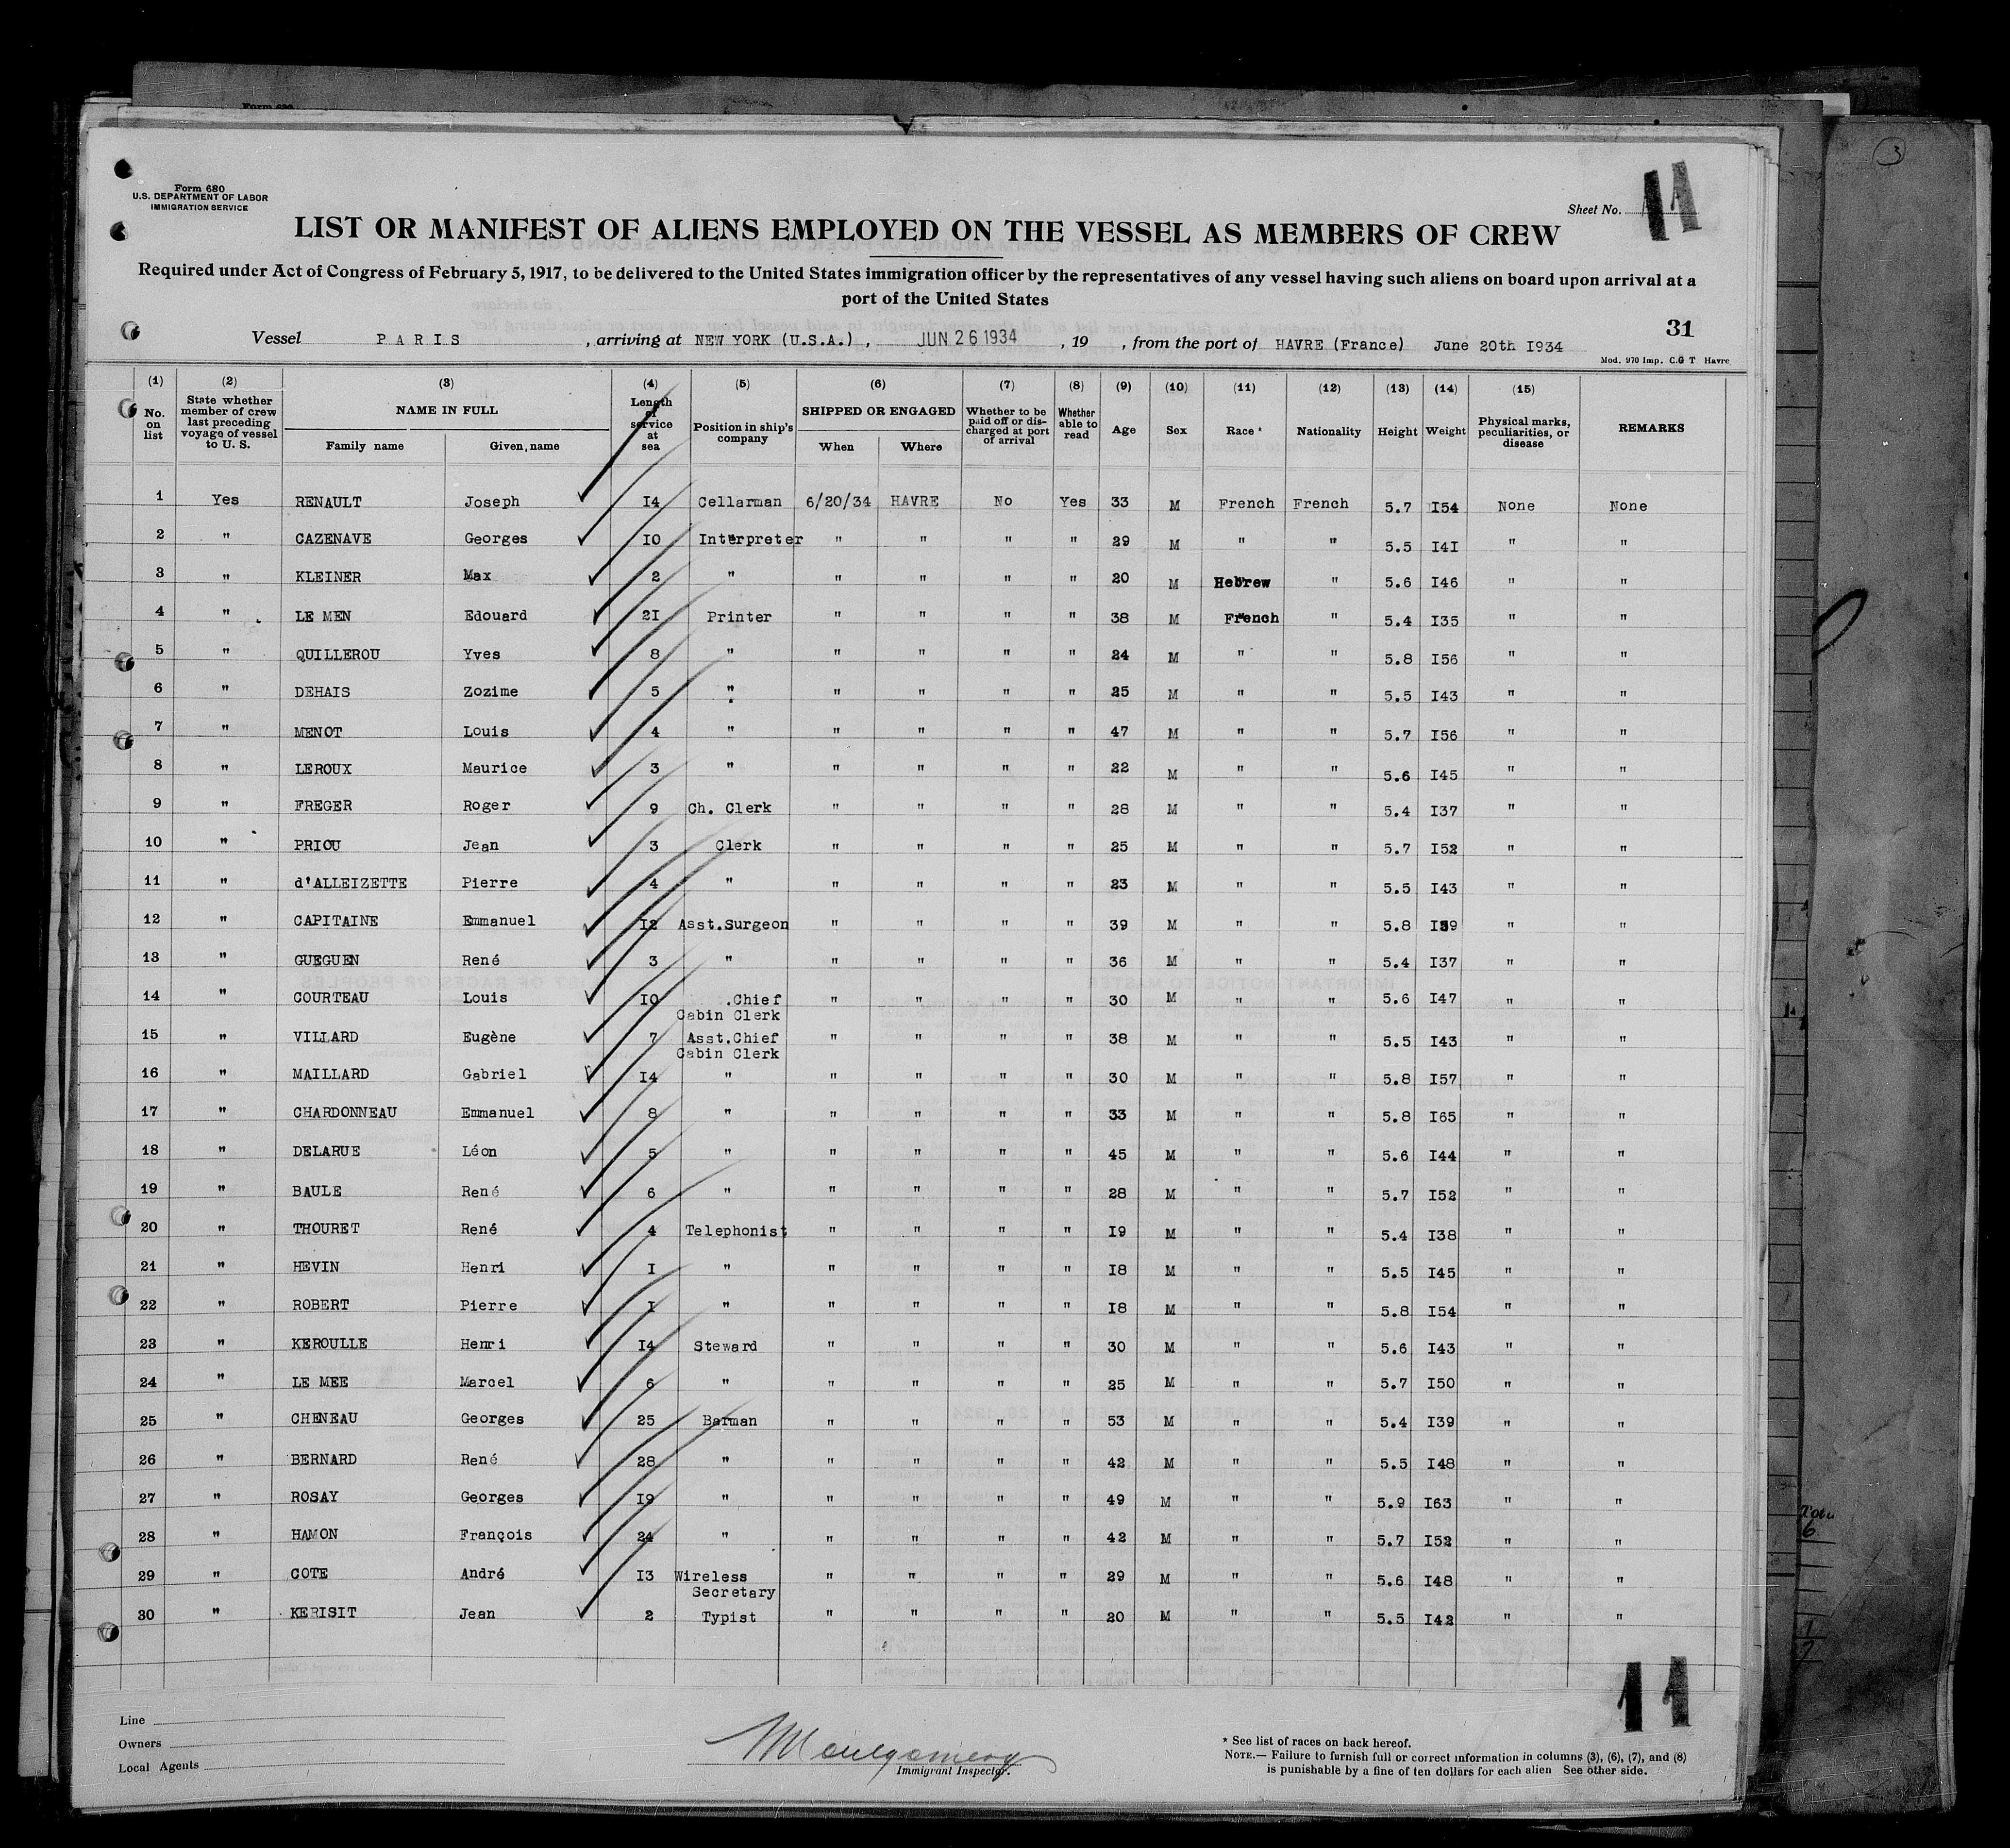 Form 680
U.S. DEPARTMENT OF LABOR
IMMIGRATION SERVICE
Sheet No. 11
LIST OR MANIFEST OF ALIENS EMPLOYED ON THE VESSEL AS MEMBERS OF CREW
Required under Act of Congress of February 5, 1917, to be delivered to the United States immigration officer by the representatives of any vessel having such aliens on board upon arrival at a
port of the United States
31
Vessel PARIS , arriving at NEW YORK (U.S.A.) , JUN 26 1934 , 19 , from the port of HAVRE (France) June 20th I934
Mod. 970 Imp. C.G T Havre
(1) No. on list (2) State whether member of crew last preceding voyage of vessel to U. S. (3) NAME IN FULL Family name Given name (4) Length of service at sea (5) Position in ship's company (6) SHIPPED OR ENGAGED When Where (7) Whether to be paid off or discharged at port of arrival (8) Whether able to read (9) Age (10) Sex (11) Race * (12) Nationality (13) Height (14) Weight (15) Physical marks, peculiarities, or disease REMARKS
1 Yes RENAULT Joseph I4 Cellarman 6/20/34 HAVRE No Yes 33 M French French 5.7 I54 None None
2 " CAZENAVE Georges IO Interpreter " " " " 29 M " " 5.5 I4I " "
3 " KLEINER Max 2 " " " " " 20 M Hebrew " 5.6 I46 " "
4 " LE MEN Edouard 2I Printer " " " " 38 M French " 5.4 I35 " "
5 " QUILLEROU Yves 8 " " " " " 24 M " " 5.8 I56 " "
6 " DEHAIS Zozime 5 " " " " " 25 M " " 5.5 I43 " "
7 " MENOT Louis 4 " " " " " 47 M " " 5.7 I56 " "
8 " LEROUX Maurice 3 " " " " " 22 M " " 5.6 I45 " "
9 " FREGER Roger 9 Ch. Clerk " " " " 28 M " " 5.4 I37 " "
10 " PRIOU Jean 3 Clerk " " " " 25 M " " 5.7 I52 " "
11 " d'ALLEIZETTE Pierre 4 " " " " " 23 M " " 5.5 I43 " "
12 " CAPITAINE Emmanuel I2 Asst.Surgeon " " " " 39 M " " 5.8 " "
13 " GUEGUEN René 3 " " " " " 36 M " " 5.4 I37 " "
14 " COURTEAU Louis IO .Chief Cabin Clerk " " " " 30 M " " 5.6 I47 " "
15 " VILLARD Eugène 7 Asst.Chief Cabin Clerk " " " " 38 M " " 5.5 I43 " "
16 " MAILLARD Gabriel I4 " " " " " 30 M " " 5.8 I57 " "
17 " CHARDONNEAU Emmanuel 8 " " " " " 33 M " " 5.8 I65 " "
18 " DELARUE Léon 5 " " " " " 45 M " " 5.6 I44 " "
19 " BAULE René 6 " " " " " 28 M " " 5.7 I52 " "
20 " THOURET René 4 Telephonist " " " " I9 M " " 5.4 I38 " "
21 " HEVIN Henri I " " " " " I8 M " " 5.5 I45 " "
22 " ROBERT Pierre I " " " " " I8 M " " 5.8 I54 " "
23 " KEROULLE Henri I4 Steward " " " " 30 M " " 5.6 I43 " "
24 " LE MEE Marcel 6 " " " " " 25 M " " 5.7 I50 " "
25 " CHENEAU Georges 25 Barman " " " " 53 M " " 5.4 I39 " "
26 " BERNARD René 28 " " " " " 42 M " " 5.5 I48 " "
27 " ROSAY Georges I9 " " " " " 49 M " " 5.9 I63 " "
28 " HAMON François 24 " " " " " 42 M " " 5.7 I52 " "
29 " COTE André I3 Wireless Secretary " " " " 29 M " " 5.6 I48 " "
30 " KERISIT Jean 2 Typist " " " " 20 M " " 5.5 I42 " "
11
Line
Owners
Local Agents
Montgomery
Immigrant Inspector.
* See list of races on back hereof.
NOTE.— Failure to furnish full or correct information in columns (3), (6), (7), and (8)
is punishable by a fine of ten dollars for each alien See other side.
3